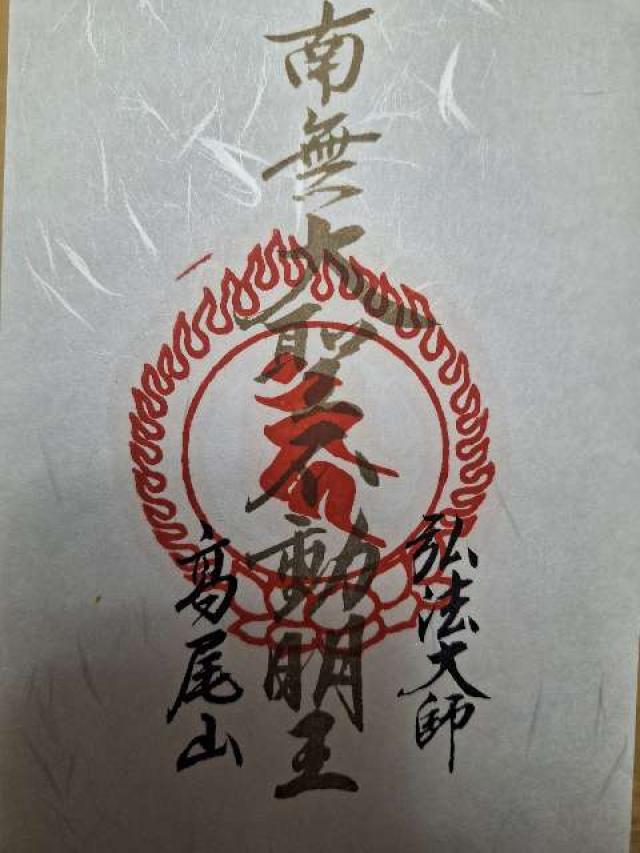 弘法大師
南無大聖不動明王
高尾山